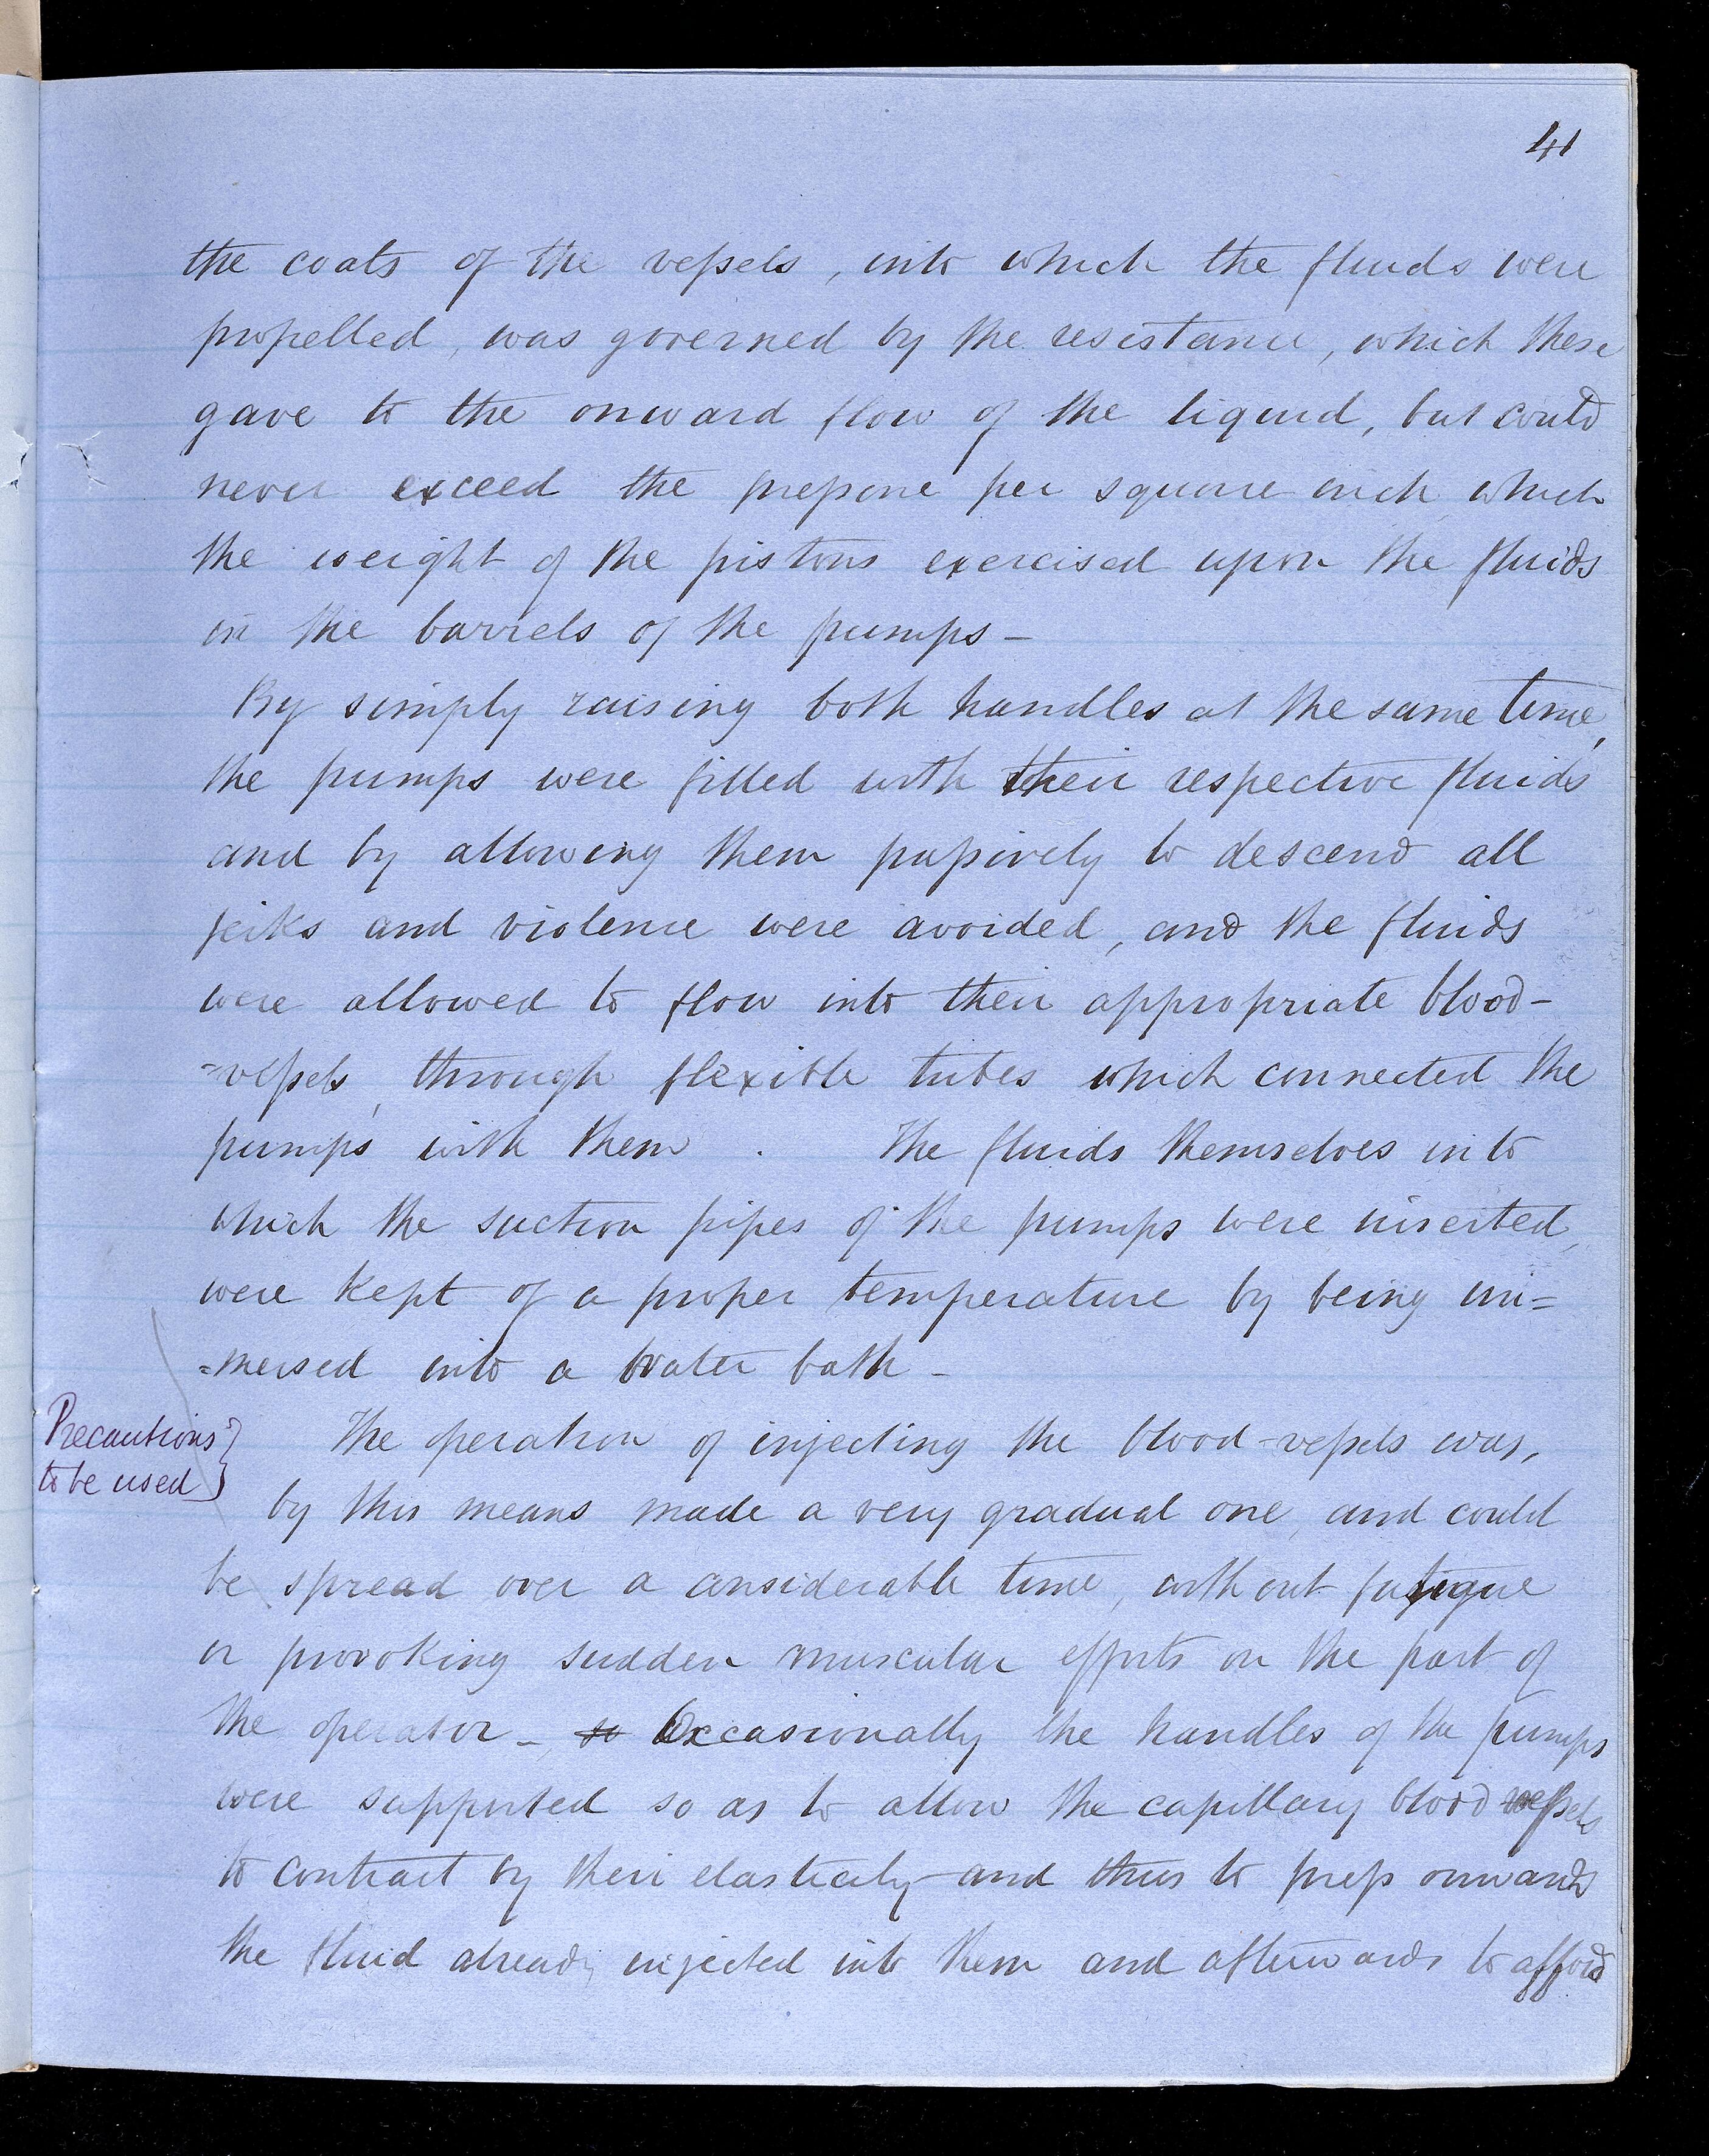 41
the coats of the vessels, into which the fluids were
propelled, was governed by the resistance, which these
gave to the onward flow of the liquid, but could
never exceed the pressure per square inch which
the weight of the pistons exercised upon the fluids
in the barrels of the pumps -
By simply raising both handles at the same time,
the pumps were filled with their respective fluids
and by allowing them passively to descend all
jerks and violence were avoided, and the fluids
were allowed to flow into their appropriate blood-
=vessels, through flexible tubes which connected the
pumps with them . The fluids themselves into
which the suction pipes of the pumps were inserted,
were kept of a proper temperature by being im=
=mersed into a water bath -
Precautions
to be used
The operation of injecting the blood-vessels was,
by this means made a very gradual one, and could
be spread over a considerable time, without fatigue
or provoking sudden muscular efforts on the part of
the operator -, so Occasionally the handles of the pumps
were supported so as to allow the capillary blood vessels
to contract by their elasticity and thus to press onwards
the fluid already injected into them and afterwards to afford